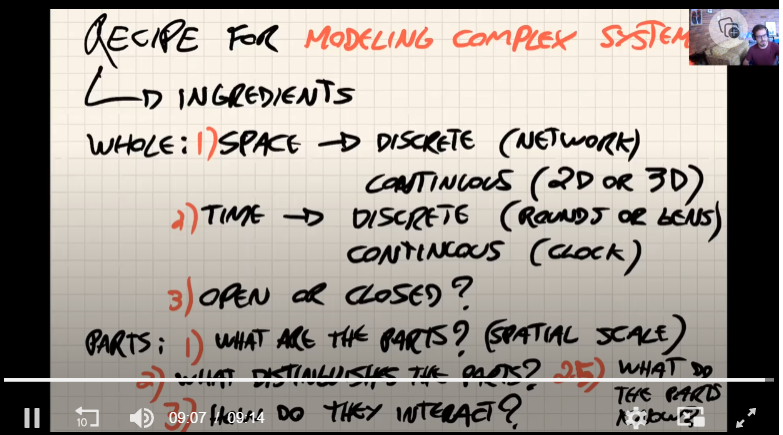 RECIPE FOR MODELING COMPLEX SYSTEM
INGREDIENTS
WHOLE: 1) SPACE → DISCRETE (NETWORK)
CONTINUOUS (2D OR 3D)
2) TIME → DISCRETE (ROUNDS OR GENS)
CONTINOUS (CLOCK)
3) OPEN OR CLOSED?
PARTS: 1) WHAT ARE THE PARTS? (SPATIAL SCALE)
2) WHAT DISTINGUISHES THE PARTS? 2.5) WHAT DO
THE PARTS
KNOW?
3) HOW DO THEY INTERACT?
10
09:07 / 09:14